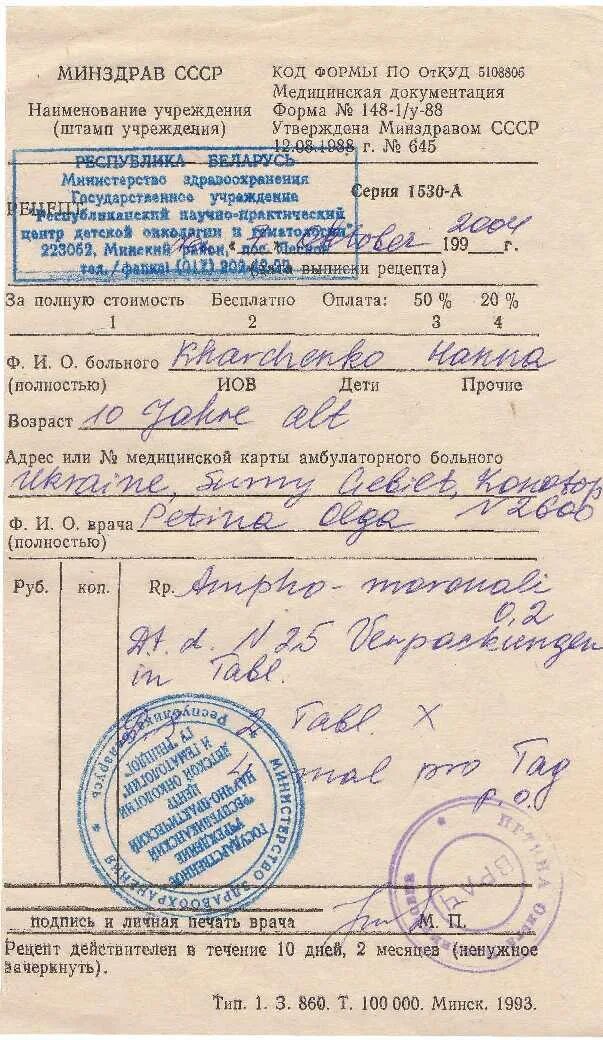 МИНЗДРАВ СССР
Наименование учреждения
(штамп учреждения)
КОД ФОРМЫ ПО ОтКУД 5108806
Медицинская документация
Форма № 148-1/у-88
Утверждена Минздравом СССР
12.08.1988 г. № 645
РЕСПУБЛИКА БЕЛАРУСЬ
Министерство здравоохранения
Государственное учреждение
"Республиканский научно-практический
центр детской онкологии и гематологии"
223052, Минский район, пос. Лесное
тел./факс (017)
Серия 1530-А
РЕЦЕПТ
October 199 2004 г.
(дата выписки рецепта)
За полную стоимость Бесплатно Оплата: 50 % 20 %
1 2 3 4
Ф. И. О. больного Kharchenko Hanna
(полностью) ИОВ Дети Прочие
Возраст 10 Jahre alt
Адрес или № медицинской карты амбулаторного больного
Ukraine, Sumy Gebiet, Konotop
N 2600
Ф. И. О. врача Petina Olga
(полностью)
Руб. коп. Rp. Ampho-moronali
0,2
D.t.d. N 25 Verpackungen
in Tabl.
2 Tabl. x
4 mal pro Tag
p.o.
МИНИСТЕРСТВО ЗДРАВООХРАНЕНИЯ
Республика Беларусь
ГОСУДАРСТВЕННОЕ
УЧРЕЖДЕНИЕ
"РЕСПУБЛИКАНСКИЙ
НАУЧНО-ПРАКТИЧЕСКИЙ
ЦЕНТР
ДЕТСКОЙ ОНКОЛОГИИ
И ГЕМАТОЛОГИИ"
ВРАЧ
подпись и личная печать врача М. П.
Рецепт действителен в течение 10 дней, 2 месяцев (ненужное
зачеркнуть).
Тип. 1. З. 860. Т. 100 000. Минск. 1993.